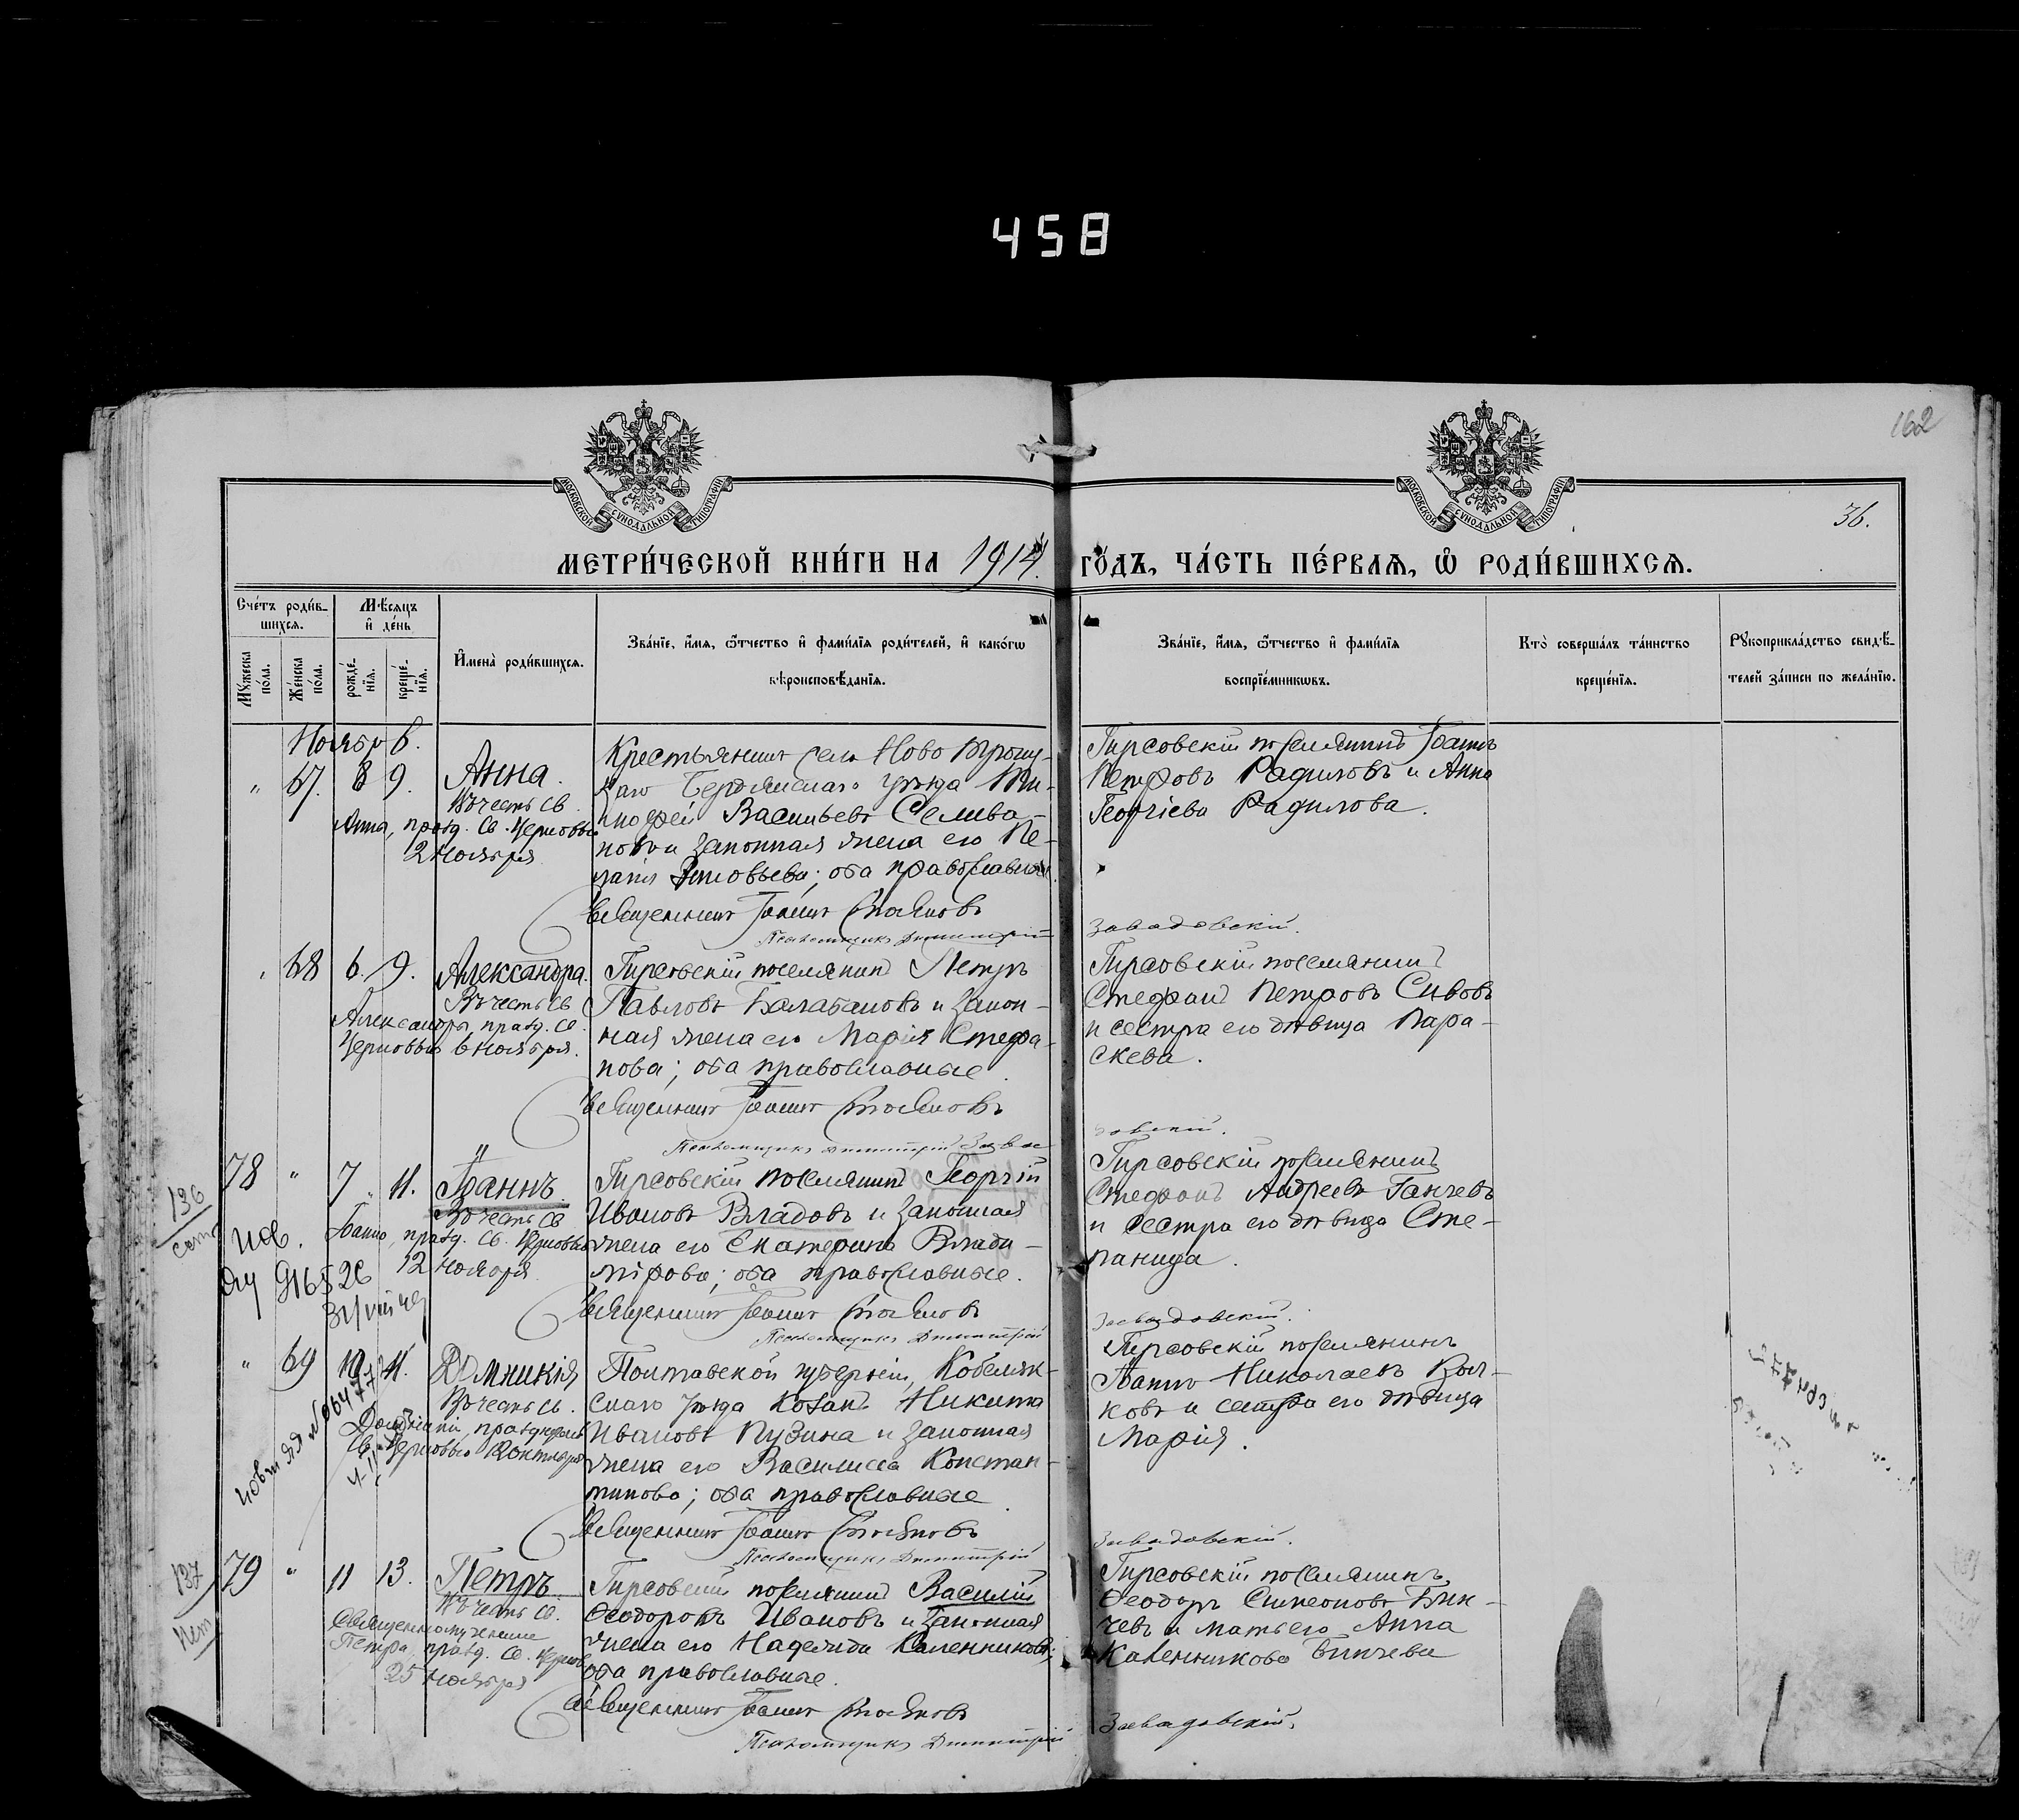 458
162
36.
МОСКОВСКОЙ СѴНОДАЛЬНОЙ ТИПОГРАФІИ
МОСКОВСКОЙ СѴНОДАЛЬНОЙ ТИПОГРАФІИ
МЕТРИ́ЧЕСКОЙ КНИ́ГИ НА 1914 ГО́ДЪ, ЧА́СТЬ ПЕ́РВАѦ, Ѡ҆ РОДИ́ВШИХСѦ.
Сче́тъ роди́в-
шихсѧ.
Мѣ́сѧцъ
и҆ де́нь
Мꙋ́жеска
по́ла.
Же́нска
по́ла.
рожде́-
нїѧ.
креще́-
нїѧ.
И҆мена̀ роди́вшихсѧ.
Зва́нїе, и҆́мѧ, ѻ҆́тчество и҆ фами́лїѧ роди́телей, и҆ како́гѡ
вѣроисповѣ́данїѧ.
Зва́нїе, и҆́мѧ, ѻ҆́тчество и҆ фами́лїѧ
воспрїе́мникѡвъ.
Кто̀ соверша́лъ та́инство
креще́нїѧ.
Рꙋкоприкла́дство свидѣ́-
телей за́писи по жела́нїю.
Ноябрь.
" 67. 8 9. Анна.
Въ честь св.
Анны, празд. св. Церковью
2 Ноября
Крестьянинъ села Ново Троиц-
каго Бердянскаго уѣзда Ти-
мофей Васильевъ Селива-
новъ и законная жена его Пе-
лагія Зиновьева; оба православные.
Священникъ Іоаннъ Стояновъ
Псаломщикъ Димитрій
Гирсовскій поселянинъ Іоаннъ
Петровъ Радиловъ и Анна
Георгіева Радилова.
Завадовскій.
" 68 6. 9. Александра.
Въ честь св.
Александры, празд. св.
Церковью 6 Ноября.
Гирсовскій поселянинъ Петръ
Павловъ Балабановъ и закон-
ная жена его Марія Стефа-
нова; оба православные.
Священникъ Іоаннъ Стояновъ
Псаломщикъ Димитрій Зава
Гирсовскій поселянинъ
Стефанъ Петровъ Сивовъ
и сестра его дѣвица Пара-
скева.
довскій.
136
78 " 7 " 11. Іоаннъ.
Въ честь св.
Іоанна, празд. св. Церковью
12 Ноября
Гирсовскій поселянинъ Георгій
Ивановъ Владовъ и законная
жена его Екатерина Влади-
мірова; оба православные.
Священникъ Іоаннъ Стояновъ
Псаломщикъ Димитрій
Гирсовскій поселянинъ
Стефанъ Андреевъ Ганчевъ
и сестра его дѣвица Сте-
панида.
Завадовскій.
" 69 10 11. Домникія
Въ честь св.
Церковью
Полтавской губерніи, Кобеляк-
скаго уѣзда Козакъ Никита
Ивановъ Пузина и законная
жена его Василисса Констан-
тинова; оба православные
Священникъ Іоаннъ Стояновъ
Псаломщикъ Димитрій
Гирсовскій поселянинъ
Іоаннъ Николаевъ Вол-
ковъ и сестра его дѣвица
Марія.
Завадовскій.
137
79 " 11 13. Петръ
Въ честь св.
Священномученика
Петра, празд. св. Церков.
25 Ноября
Гирсовскій поселянинъ Василій
Ѳеодоровъ Ивановъ и законная
жена его Надежда Каленникова;
оба православные.
Священникъ Іоаннъ Стояновъ
Псаломщикъ Димитрій
Гирсовскій поселянинъ
Ѳеодоръ Симеоновъ Бин-
чевъ и мать его Анна
Каленникова Бинчева
Завадовскій.